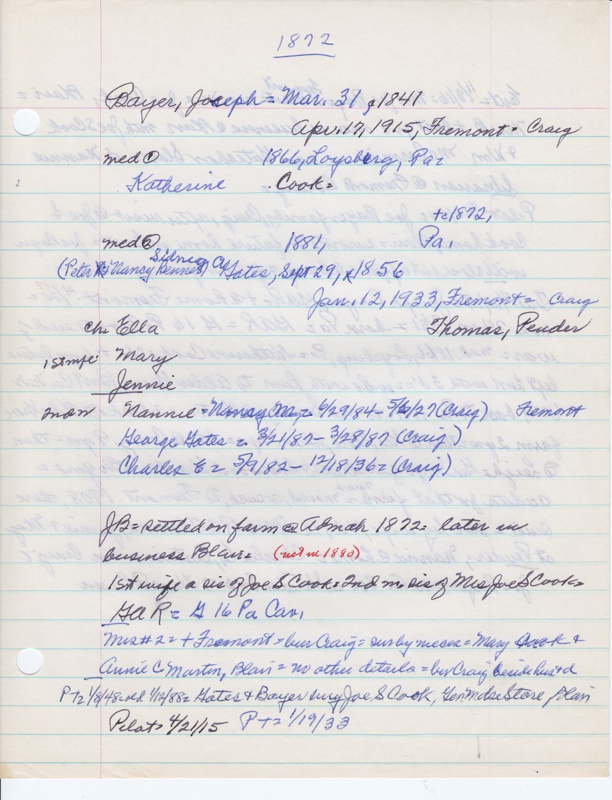 1872
Bayer, Joseph = Mar. 31, 1841
Apr. 17, 1915, Fremont = Craig
med ① 1866, Loysberg, Pa =
Katherine Cook =
+c1872,
med ② 1881, Pa,
(Peter & Nancy Sidney Kenner) Gates, Sept 29, 1856
Jan. 12, 1933, Fremont = Craig
Ch Ella Thomas, Pender
1st mge Mary
Jennie
Nannie = Nancy = 6/29/84 - (Craig) Fremont
George Gates = 3/21/87 - 3/28/87 (Craig)
Charles C = 5/9/82 - 12/18/36 = (Craig)
JB = settled on farm @ 1872 = later in
business Blair = (not in 1880)
1st wife a sis of Joe S Cook = 2nd m sis of Mrs Joe S Cook =
GaR = G 16 Pa Cav,
Mrs #2 = + Fremont = bur Craig = sur by nieces = Mary Cook &
Annie C Martin, Blair = no other details = bur Craig beside husbd
P + 2 1/8/48 = Gates & Bayer Joe S Cook, Gen Mdse Store Blair
Pilot = 4/21/15 P + = 1/19/33